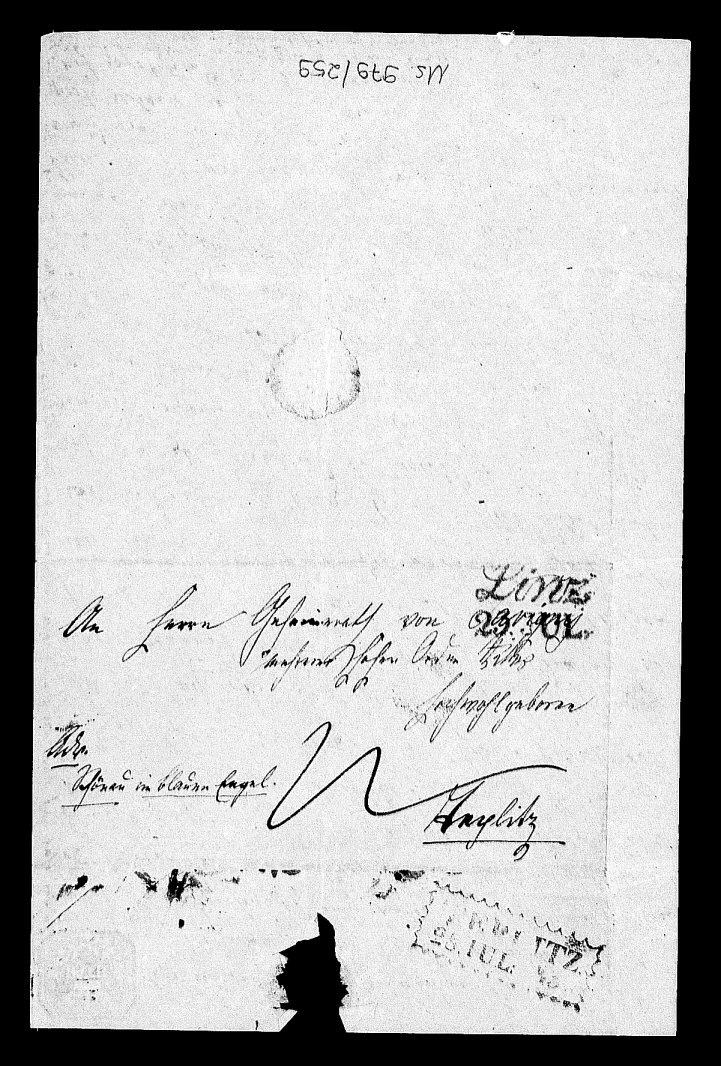 Ms 979/259
Linz
23. JUL.
An Herrn Geheimrath von
mehrerer hohen Orden Ritter
Hochwohlgeboren
Adr.
Schönau im blauen Engel.
Teplitz
ITZ
JUL